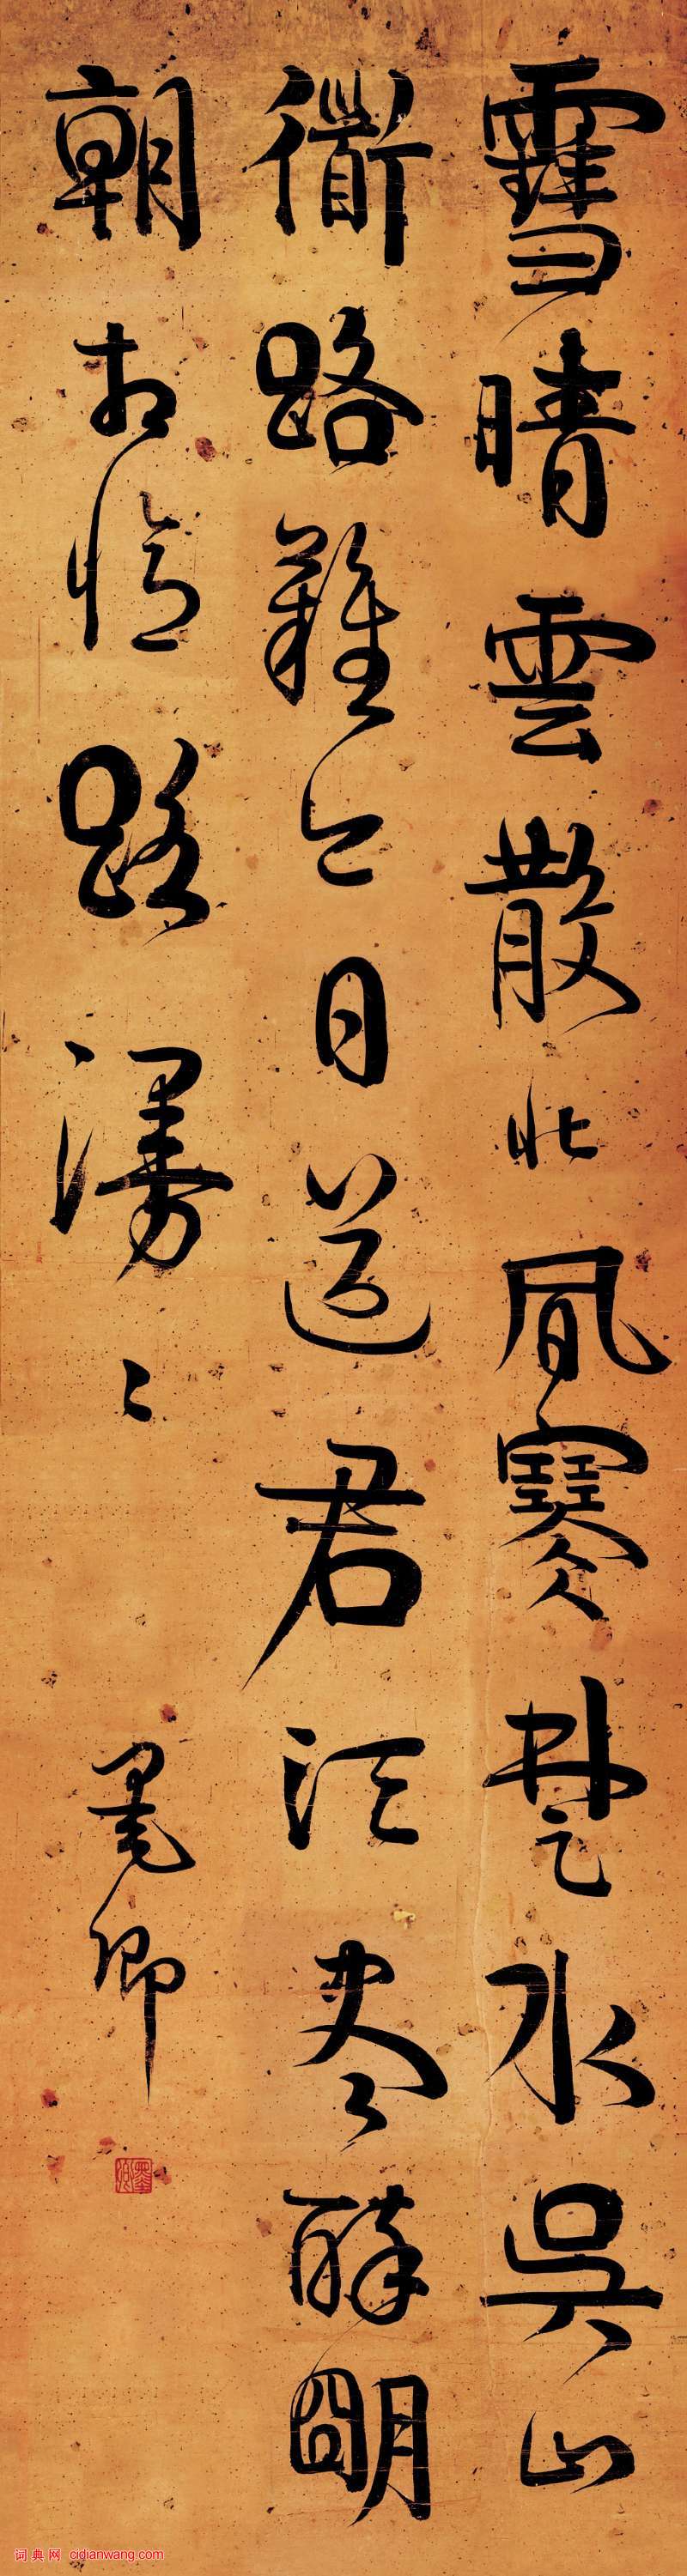 雪晴雲散北風寒楚水吳山
衜路難今日送君須盡醉朙
朝相憶路漫〻
墨卿
词典网 cidianwang.com